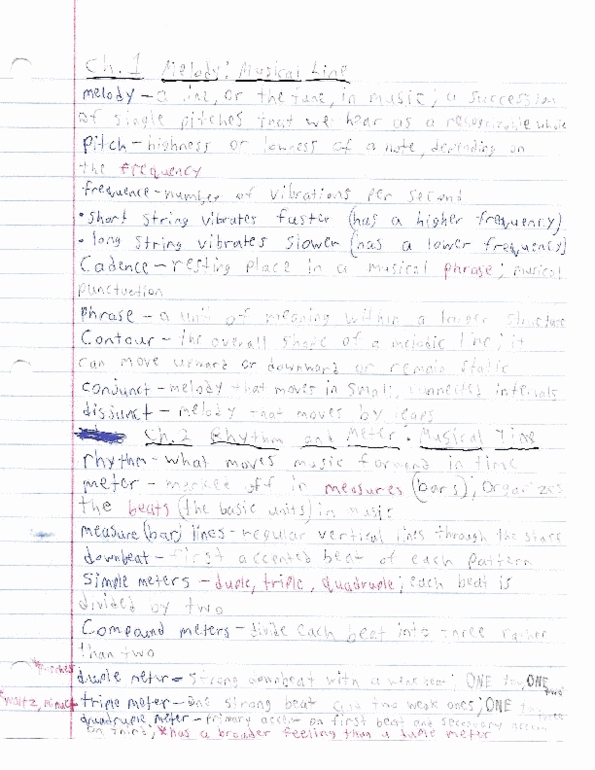 Ch. 1 Melody: Musical Line
melody - a line, or the tune, in music; a succession
of single pitches that we hear as a recognizable whole
Pitch - highness or lowness of a note, depending on
the frequency
frequence - number of vibrations per second
• short string vibrates faster (has a higher frequency)
• long string vibrates slower (has a lower frequency)
Cadence - resting place in a musical phrase; musical
punctuation
phrase - a unit of meaning within a larger structure
Contour - the overall shape of a melodic line; it
can move upward or downward or remain static
conjunct - melody that moves in small, connected intervals
disjunct - melody that moves by leaps
Ch. 2 Rhythm and Meter: Musical Time
rhythm - what moves music forward in time
meter - marked off in measures (bars); organizes
the beats (the basic units) in music
measure (bar) lines - regular vertical lines through the staff
downbeat - first accented beat of each pattern
Simple meters - duple, triple, quadruple; each beat is
divided by two
Compound meters - divide each beat into three rather
than two
*marches duple meter - strong downbeat with a weak beat; ONE two, ONE two
*waltz, minuet triple meter - one strong beat and two weak ones; ONE two three
quadruple meter - primary accent on first beat and secondary accent
on third; *has a broader feeling than a duple meter